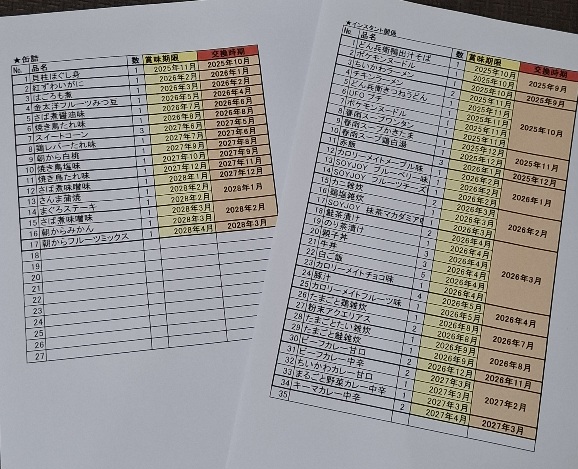 ★缶詰
No. 品名 数 賞味期限 交換時期
1 貝柱ほぐし身 1 2025年11月 2025年10月
2 紅ずわいがに 1 2026年2月 2026年1月
3 はごろも煮 1 2026年3月 2026年2月
4 金太洋フルーツみつ豆 1 2026年5月 2026年4月
5 さば煮醤油味 1
6 焼き鳥たれ味 1
7 スイートコーン 3 2027年6月
8 鶏レバーたれ味 1 2027年7月 2027年6月
9 朝から白桃 1
10 焼き鳥塩味 1 2027年10月 2027年9月
11 焼き鳥たれ味 1 2027年12月 2027年11月
12 さば煮味噌味 1 2028年1月 2027年12月
13 さんま蒲焼 1 2028年2月 2028年1月
14 まぐろステーキ 1 2028年2月
15 さば煮味噌味 1 2028年3月 2028年2月
16 朝からみかん 1 2028年3月
17 朝からフルーツミックス 1 2028年4月 2028年3月
18
19
20
21
22
23
24
25
26
27
★インスタント関係
No. 品名 数 賞味期限 交換時期
1 どん兵衛鴨出汁そば 1 2025年10月 2025年9月
2 ポケモンヌードル 2025年10月
3 ちいかわラーメン 2025年10月 2025年9月
4 チキンラーメン 2025年10月
5 どん兵衛きつねうどん 2025年11月 2025年10月
6 UFO 2025年11月
7 ポケモンヌードル 2025年11月
8 春雨スープワンタン
9 春雨スープかきたま 2025年12月 2025年11月
10 春雨スープ鶏白湯 2025年12月
11 赤飯 3 2025年12月
12 カロリーメイトメープル味 2026年1月
13 SOYJOY ブルーベリー味
14 SOYJOY フルーツチーズ 2026年2月
15 カニ雑炊 2026年3月
16 鶏塩雑炊 2026年3月
17 SOYJOY 抹茶マカダミア味
18 鮭茶漬け 2026年4月 2026年3月
19 のり茶漬け 2026年4月
20 親子丼 2026年4月
21 牛丼 3 2026年4月
22 白ご飯 5 2026年4月
23 カロリーメイトチョコ味 2026年4月
24 豚汁 4 2026年5月 2026年4月
25 カロリーメイトフルーツ味 1 2026年5月
26 たまごと鶏雑炊 1 2026年7月
27 粉末アクエリアス 2 2026年8月
28 たまごとたい雑炊 1
29 たまごと鮭雑炊 1 2026年9月 2026年8月
30 ビーフカレー甘口 2 2026年12月 2026年11月
31 ビーフカレー中辛 2 2027年3月
32 ちいかわカレー甘口 1 2027年3月 2027年2月
33 まるごと野菜カレー中辛 1 2027年3月
34 キーマカレー中辛 2 2027年4月 2027年3月
35